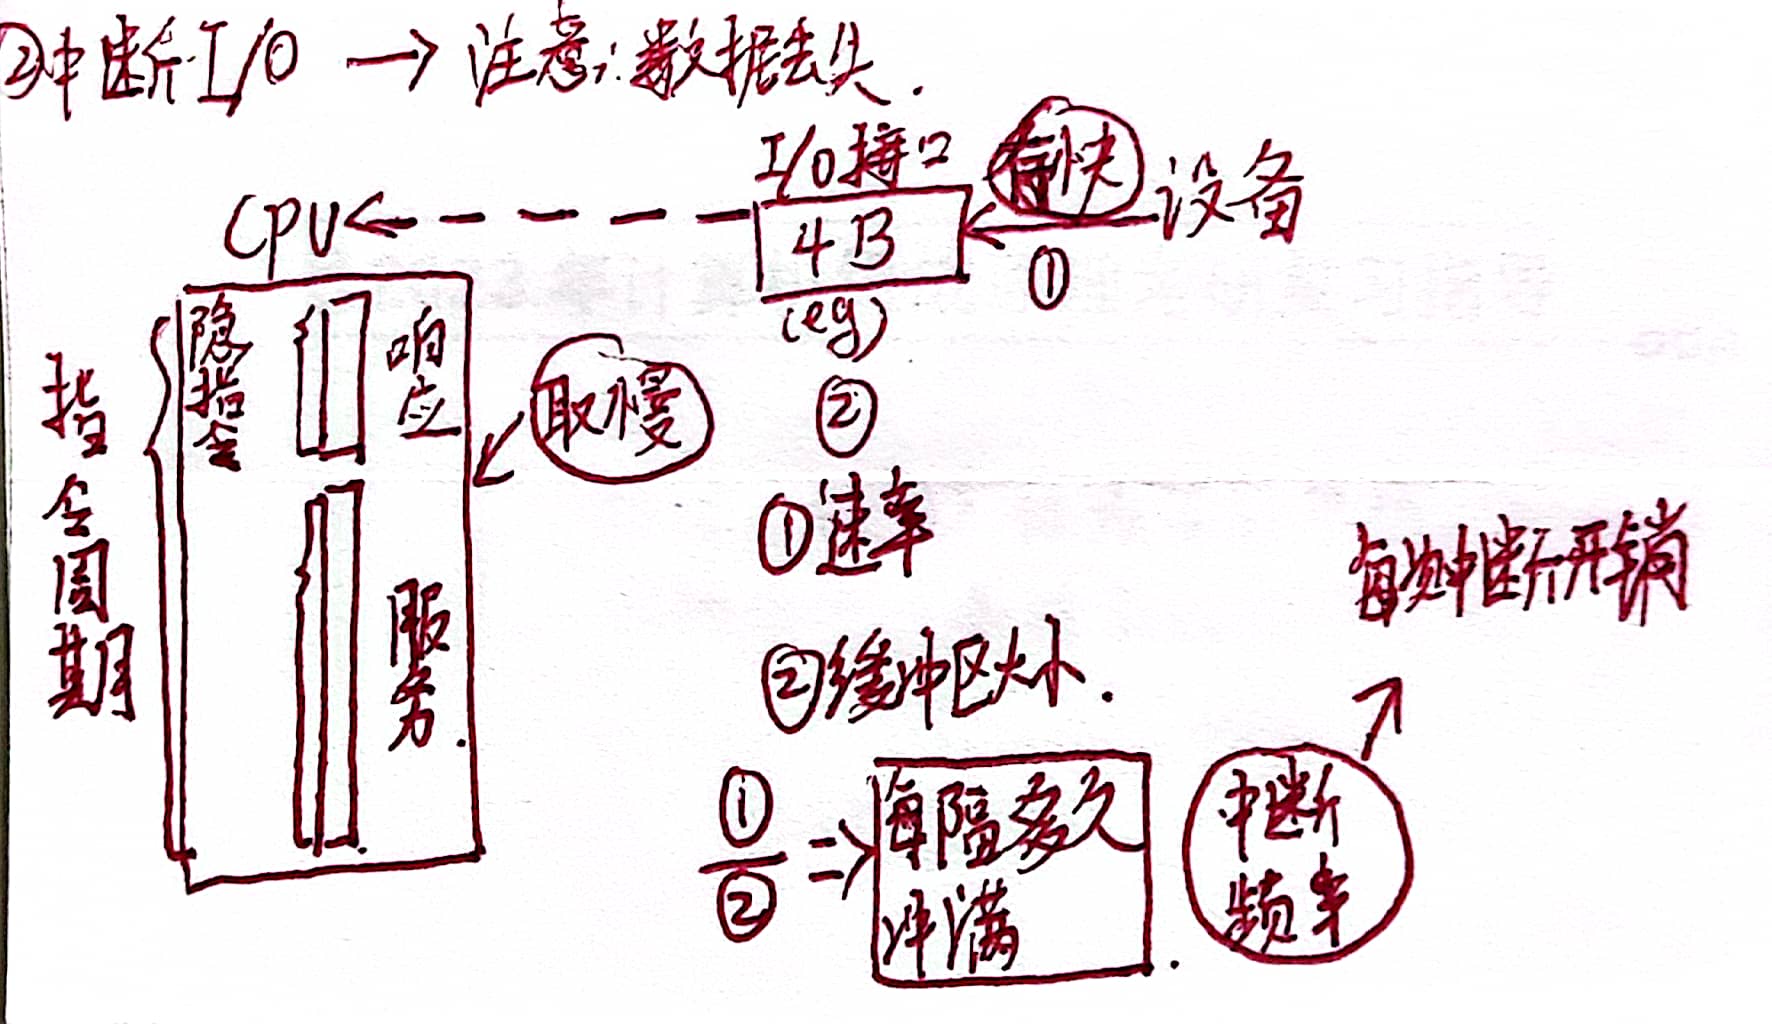 ②中断I/O → 注意：数据丢失．
I/O接口
存快
设备
CPU
4B
①
(eg)
隐指令
响应
取慢
②
指令周期
①速率
每次中断开销
服务．
②缓冲区大小．
①/② ⇒ 每隔多久冲满．
中断频率